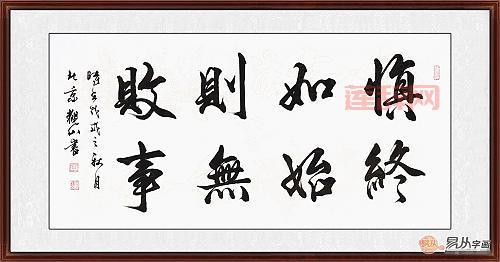 慎終
如始
則無
敗事
時在戊戌之秋月
北京觀山書
易从字画